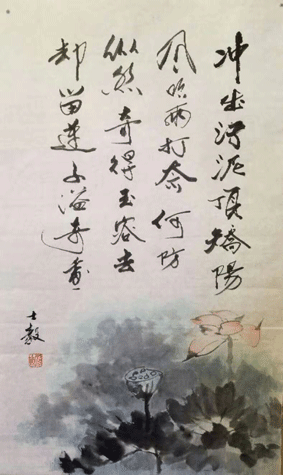 冲出污泥顶矯陽
风吹雨打奈何防
纵然奇得玉容去
却留莲子溢遠香
士毅